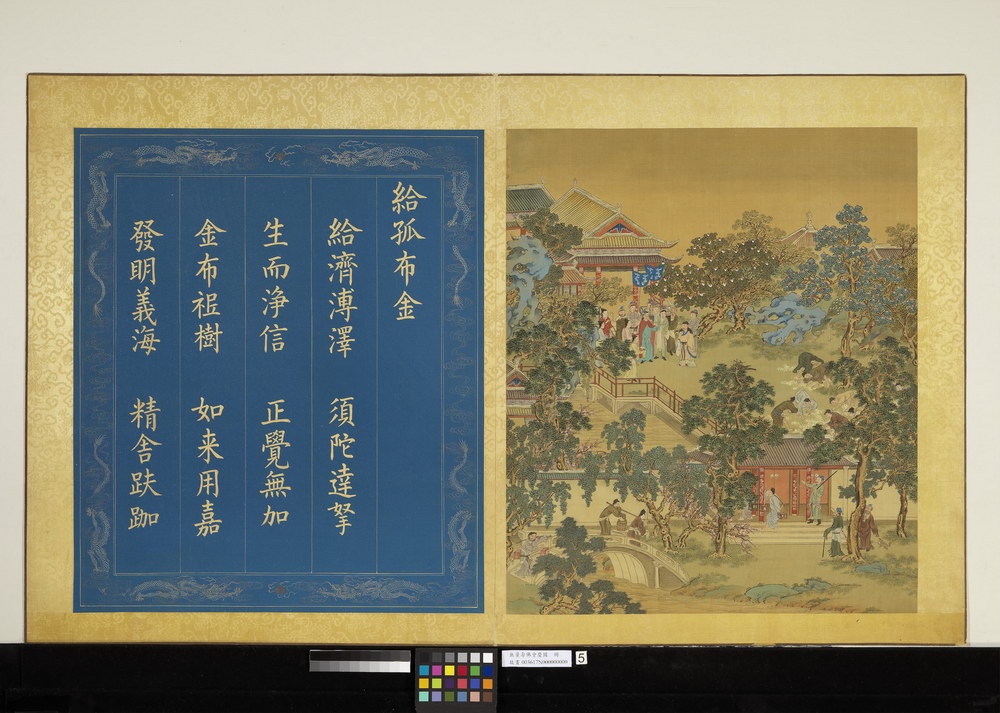 給孤布金
給濟溥澤 須陀達拏
生而淨信 正覺無加
金布祇樹 如来用嘉
發明義海 精舍趺跏
003617N000000000
5